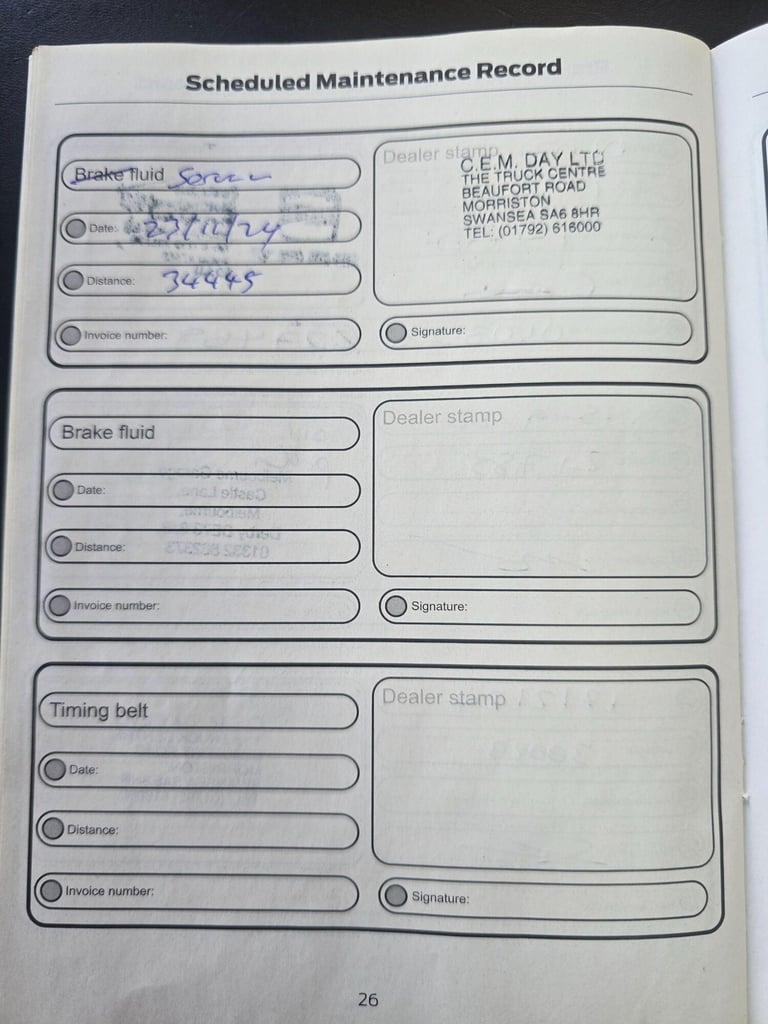 Scheduled Maintenance Record
Brake fluid
Date: 23/12/24
Distance: 34445
Invoice number:
Dealer stamp
C.E.M. DAY LTD
THE TRUCK CENTRE
BEAUFORT ROAD
MORRISTON
SWANSEA SA6 8HR
TEL: (01792) 616000
Signature:
Brake fluid
Date:
Distance:
Invoice number:
Dealer stamp
Signature:
Timing belt
Date:
Distance:
Invoice number:
Dealer stamp
Signature:
26